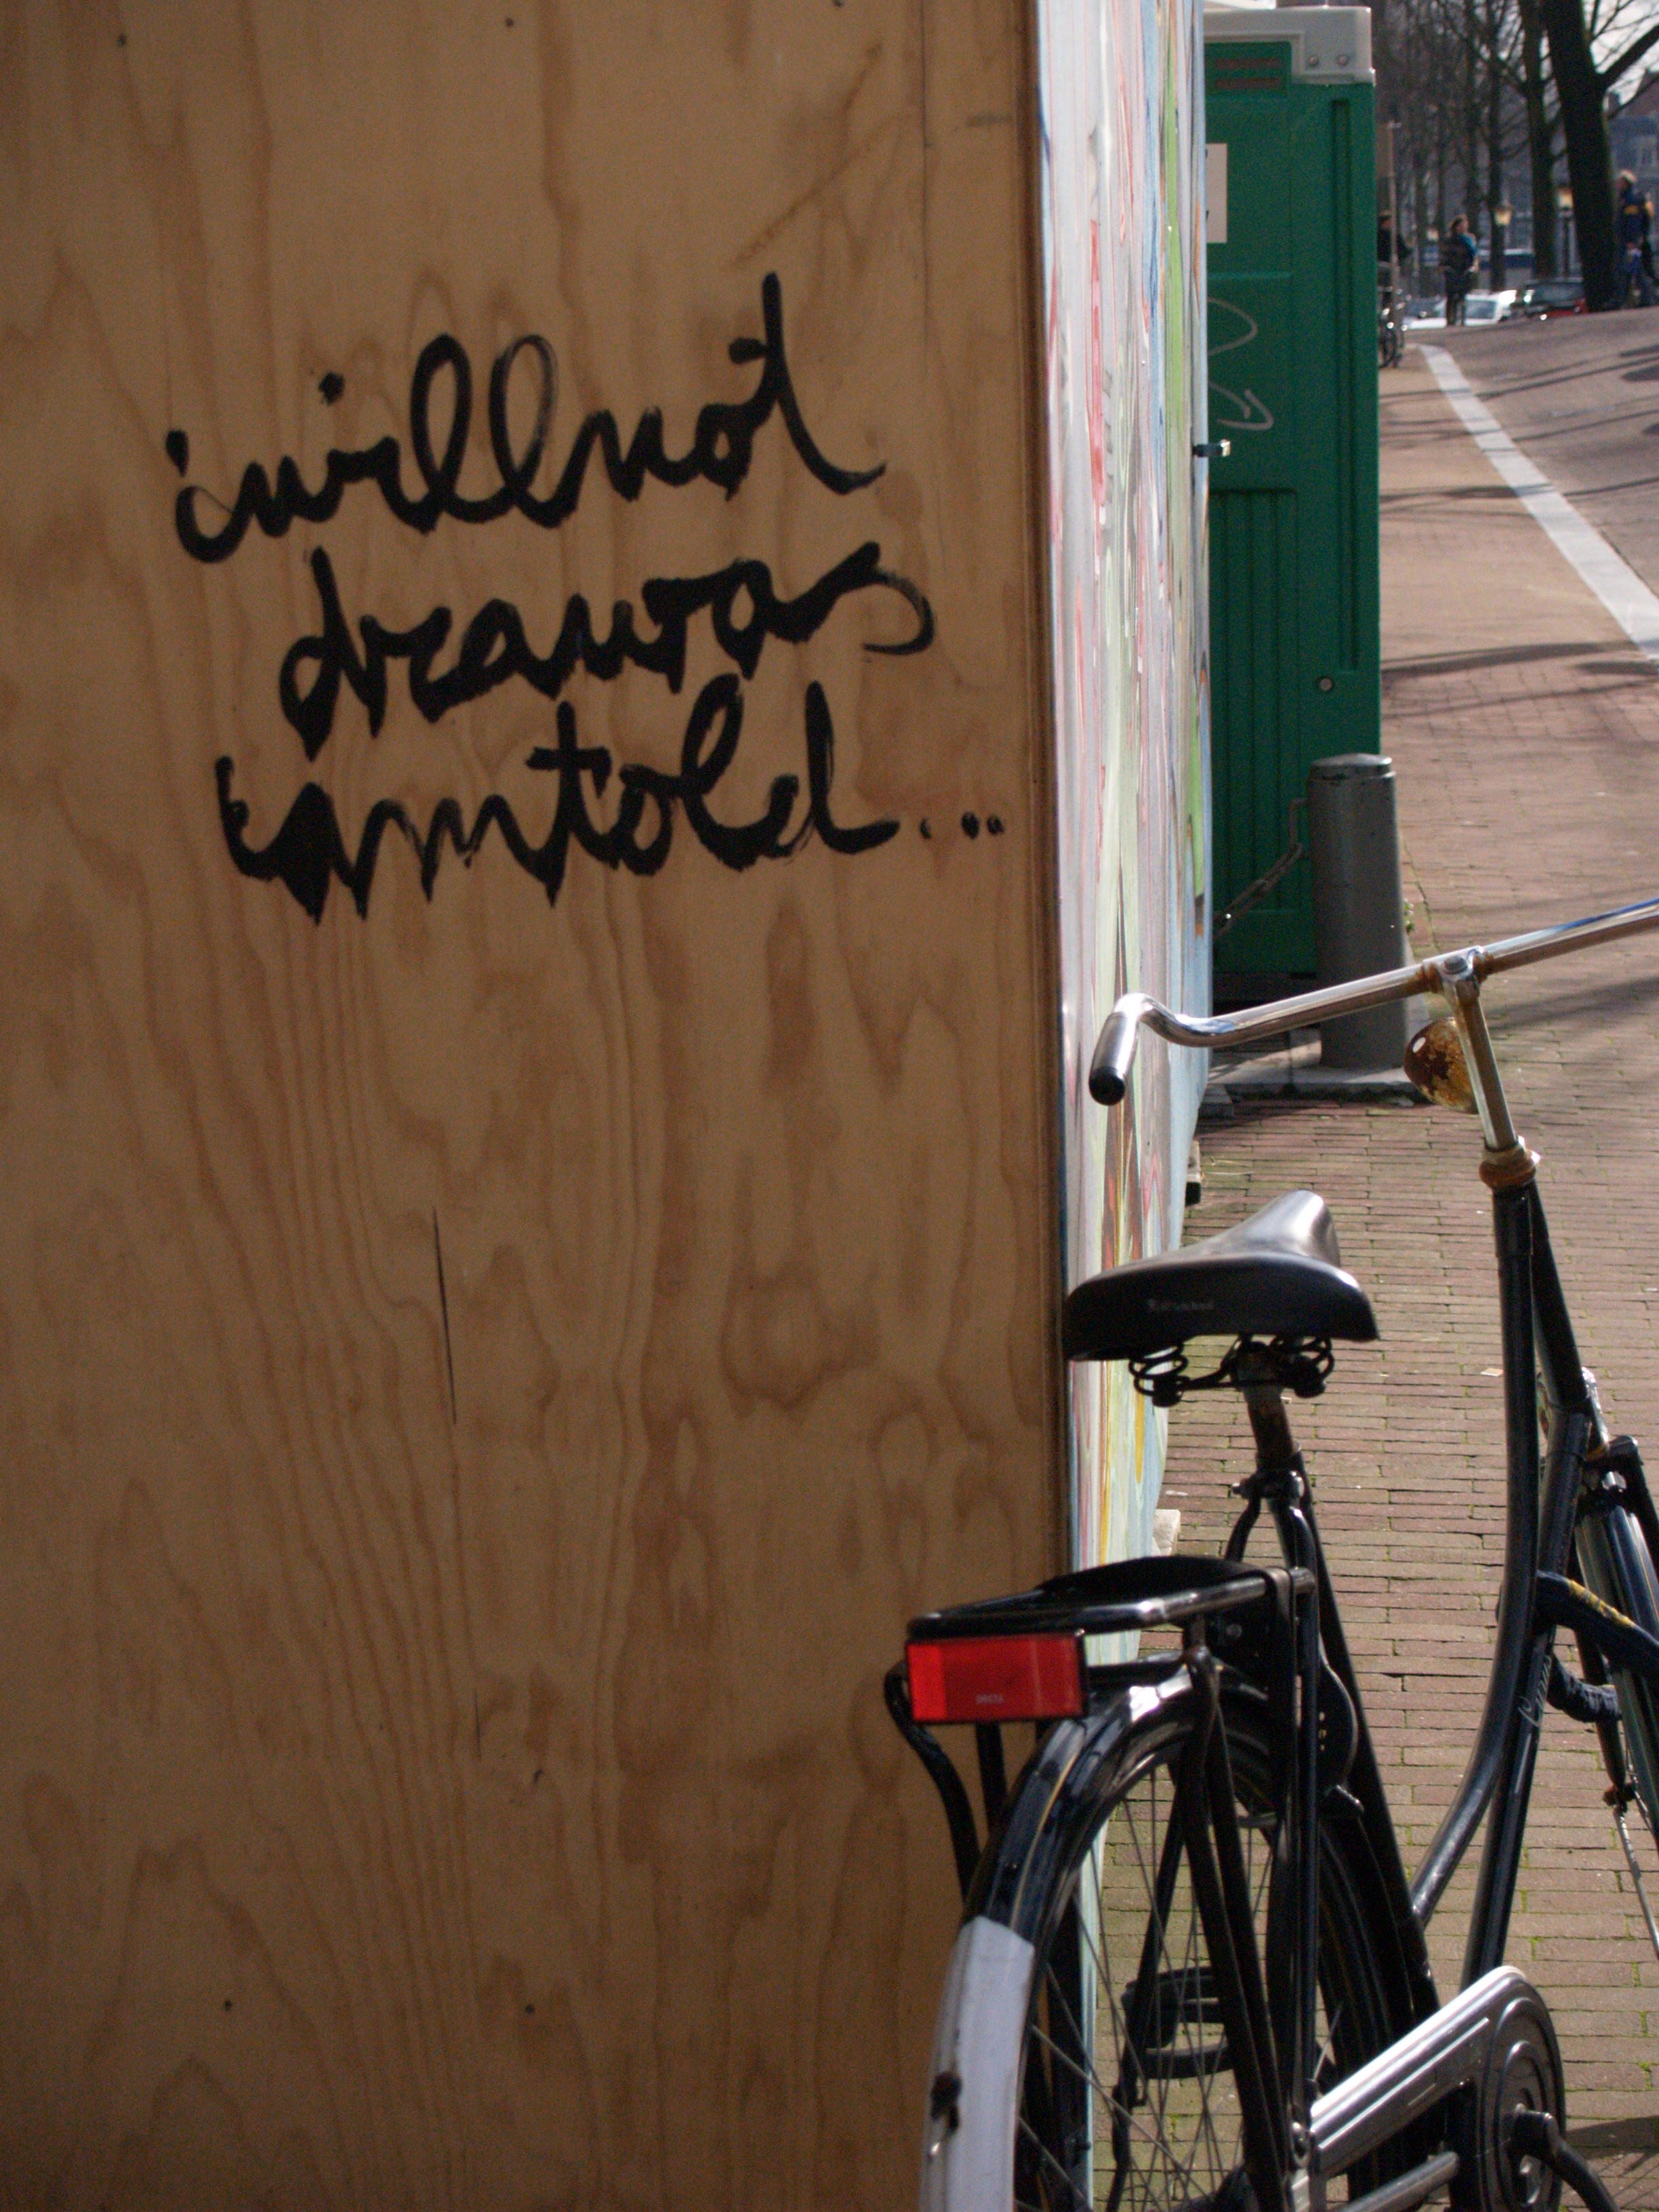 i will not
draw as
i am told...